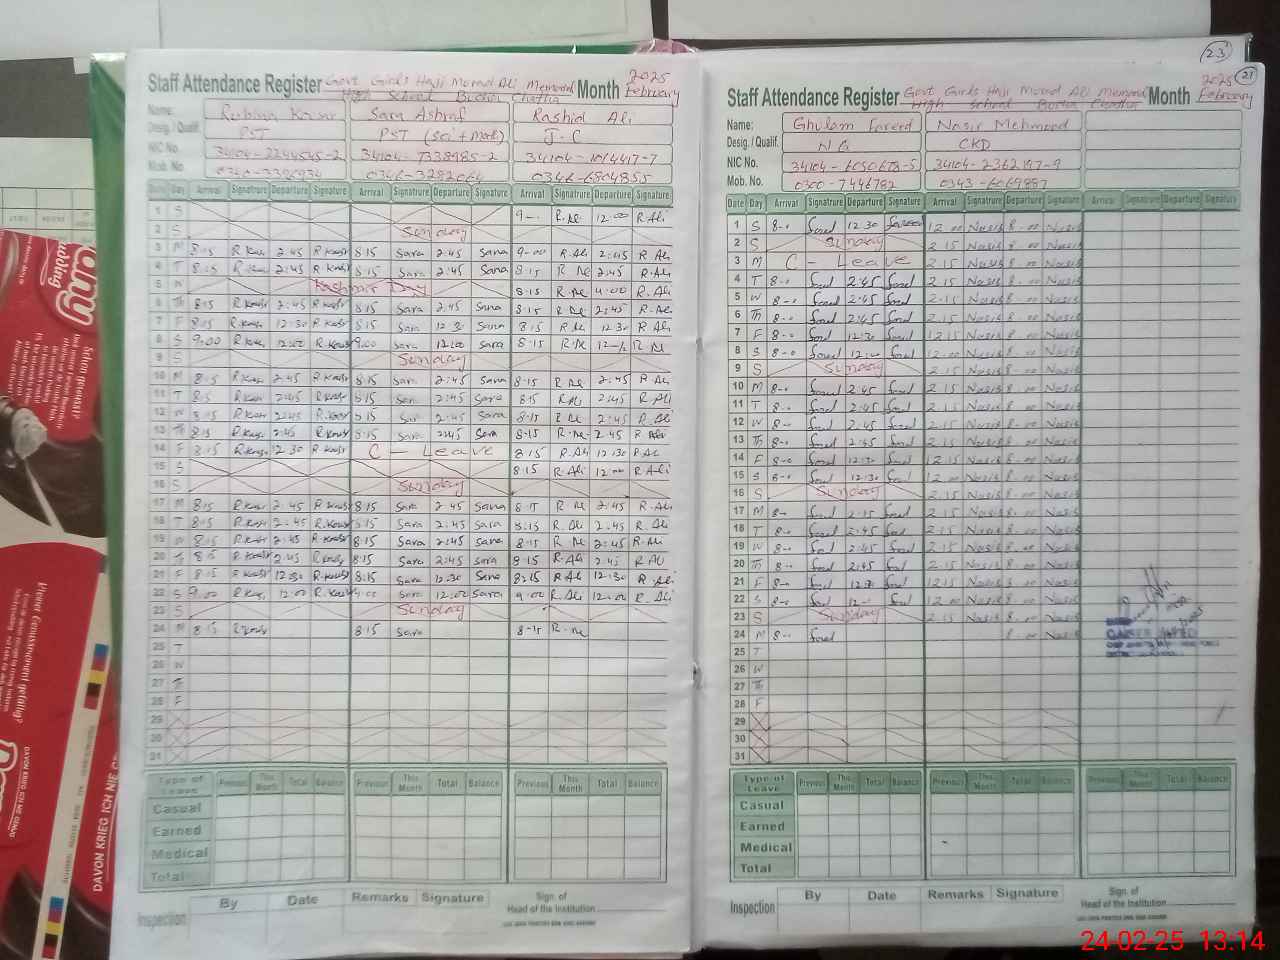 23
Staff Attendance Register Govt Girls Haji Murad Ali Memorial Month 2025
High School Bucha Chatha February
Name: Rubina Kausar Sara Ashraf Rashid Ali
Desig./ Qualif. PST PST (Sci + Math) J.C
NIC No. 34104-2244545-2 34104-7338985-2 34104-1014417-7
Mob. No. 0346-3282064 0346-6804855
Date Day Arrival Signatrure Departure Signatrure Arrival Signatrure Departure Signatrure Arrival Signatrure Departure Signatrure
1 S 9-- R.Ali 12.00 R.Ali
2 S Sunday
3 M 8:15 R.Kausr 2:45 R.Kausr 8:15 Sara 2:45 Sana 9-00 R.Ali 2:45 R.Ali
4 T 8:15 R.Kausr 2:45 R.Kausr 8:15 Sara 2:45 Sana 8:15 R.Ali 2:45 R.Ali
5 W Kashmir Day 8:15 R.Ali 4:00 R.Ali
6 Th 8:15 R.Kausr 2:45 R.Kausr 8:15 Sara 2:45 Sara 8:15 R.Ali 2:45 R.Ali
7 F 8:15 R.Kausr 12:30 R.Kausr 8:15 Sara 12:30 Sara 8:15 R.Ali 12:30 R.Ali
8 S 9.00 R.Kausr 12:00 R.Kausr 9:00 Sara 12:00 Sara 8-15 R.Ali R.Ali
9 S Sunday
10 M 8:15 R.Kausr 2:45 R.Kausr 8:15 Sara 2:45 Sana 8-15 R.Ali 2:45 R.Ali
11 T 8:15 R.Kausr 2:45 R.Kausr 8:15 Sara 2:45 Sara 8:15 R.Ali 2:45 R.Ali
12 W 8:15 R.Kausr 2:45 R.Kausr 8:15 Sara 2:45 Sara 8-15 R.Ali 2:45 R.Ali
13 Th 8:15 R.Kausr 2:45 R.Kausr 8:15 Sara 2:45 Sara 8-15 R.Ali 2.45 R.Ali
14 F 8:15 R.Kausr 12 30 R.Kausr C - Leave 8:15 R.Ali 12:30 R.Ali
15 S 8:15 R.Ali 12:00 R.Ali
16 S Sunday
17 M 8:15 R.Kausr 2:45 R.Kausr 8:15 Sara 2:45 Sana 8-15 R.Ali 2:45 R.Ali
18 T 8:15 R.Kausr 2:45 R.Kausr 8:15 Sara 2:45 Sara 8:15 R.Ali 2:45 R.Ali
19 W 8:15 R.Kausr 2:45 R.Kausr 8:15 Sara 2:45 Sara 8:15 R.Ali 2:45 R.Ali
20 Th 8:15 R.Kausr 2:45 R.Kausr 8:15 Sara 2:45 Sara 8:15 R.Ali 2.45 R.Ali
21 F 8:15 R.Kausr 12:30 R.Kausr 8:15 Sara 12:30 Sara 8:15 R.Ali 12:30 R.Ali
22 S 9.00 R.Kausr 12:00 R.Kausr 9:00 Sara 12:00 Sara 9:00 R.Ali 12:00 R.Ali
23 S Sunday
24 M 8:15 R.Kausr 8:15 Sara 8-15 R.Ali
25 T
26 W
27 Th
28 F
29
30
31
Type of Leave Previous This Month Total Balance Previous This Month Total Balance Previous This Month Total Balance
Casual
Earned
Medical
Total
Inspection By Date Remarks Signature Sign. of
Head of the Institution
Staff Attendance Register Govt Girls Haji Murad Ali Memorial Month 2025 21
High School Bucha Chatha February
Name: Ghulam Fareed Nasir Mehmood
Desig. / Qualif. N Q CKD
NIC No. 34104-6050673-5 34104-2362197-9
Mob. No. 0300-7446782 0343-6069887
Date Day Arrival Signatrure Departure Signatrure Arrival Signatrure Departure Signatrure Arrival Signatrure Departure Signatrure
1 S 8-0 12 30 12 00 Nasir 8.00 Nasir
2 S Sunday 2 15 Nasir 8.00 Nasir
3 M C - Leave 2 15 Nasir 8.00 Nasir
4 T 8-0 2:45 2.15 Nasir 8.00 Nasir
5 W 8-0 2:45 2.15 Nasir 8.00 Nasir
6 Th 8-0 2:45 2.15 Nasir 8.00 Nasir
7 F 8-0 12:30 12 15 Nasir 8.00 Nasir
8 S 8-0 12:00 12.00 Nasir 8.00 Nasir
9 S Sunday 2.15 Nasir 8.00 Nasir
10 M 8-0 2:45 2.15 Nasir 8.00 Nasir
11 T 8-0 2:45 2.15 Nasir 8.00 Nasir
12 W 8-0 2:45 2.15 Nasir 8.00 Nasir
13 Th 8-0 2:45 2.15 Nasir 8.00 Nasir
14 F 8-0 12:30 12 15 Nasir 8.00 Nasir
15 S 8-0 12:30 12 00 Nasir 8.00 Nasir
16 S Sunday 2.15 Nasir 8.00 Nasir
17 M 8-0 2.15 Nasir 8.00 Nasir
18 T 8-0 2:45 2.15 Nasir 8.00 Nasir
19 W 8-0 2:45 2.15 Nasir 8.00 Nasir
20 Th 8-0 2:45 2.15 Nasir 8.00 Nasir
21 F 8-0 12:30 12.15 Nasir 8.00 Nasir
22 S 8-0 12 00 Nasir 8.00 Nasir
23 S Sunday 2.15 Nasir 8.00 Nasir
24 M 8-0 8.00 Nasir
25 T
26 W
27 Th
28 F
29
30
31
Type of Leave Previous This Month Total Balance Previous This Month Total Balance Previous This Month Total Balance
Casual
Earned
Medical
Total
Inspection By Date Remarks Signature Sign. of
Head of the Institution
DAVON KRIEG ICH NIE GENUG
24-02-25 13:14